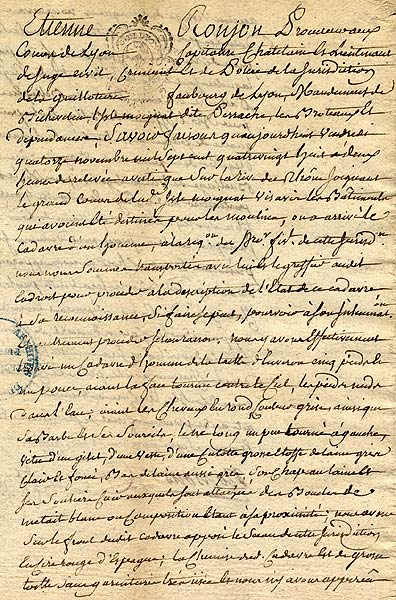 Etienne Roujon Procureur aux
Cours de Lyon Capitaine Chatelain et Lieutenant
de Juge Civil, Criminel et de Police de la Jurisdiction
de la Guillotiere faubourg de Lyon, Mandement de
Bechevelin, Isle mogniat dite Perrache, les Broteaux Et
dependances Savoir faisons qu'aujourdhui vendredi
quatorze novembre mil sept cent quatre vingt huit à deux
heures de relevée avertis que Sur la rive du Rhône joignant
le grand Cours de lad. Isle mogniat vis avis les Batiments
qui avoient été destinés pour les moulins, on a arrêté le
cadavre d'un homme, à la req.on du Pro.r fis.l de cette Jurisd.on
nous nous Sommes transportés avec le greffier audit
Endroit pour procéder à la description de l'Etat de ce cadavre
à Sa reconnoissance, Si faire Se peut, pourvoir à Son Inhumation
procéder nous avons Effectivement
un Cadavre d'homme de la taille d'Environ cinq pieds
un pouce, ayant la face tournée contre le Ciel, les pieds
dans l'Eau, ayant les Cheveux en rond Couleur grise, ainsi que
Sa Barbe et Ses Sourcils, le né long un peu tourné à gauche,
vetu d'un gilet, d'une veste, d'une Culotte grosse Etoffe de laine grise
clair et foncé, Bas de laine aussi gris Son Chapeau laine et
Ses Souliers Cuir auxquels sont attachées des Boucles de
metail blanc ou Composition Etant à Sa proximité; nous avons
Sur le front dudit cadavre apposé le Sceau de cette Jurisdiction
En Cire rouge d'Espagne; la Chemise dud. Cadavre Est de grosse
toille Sans garniture et nous n'y avons apperçu